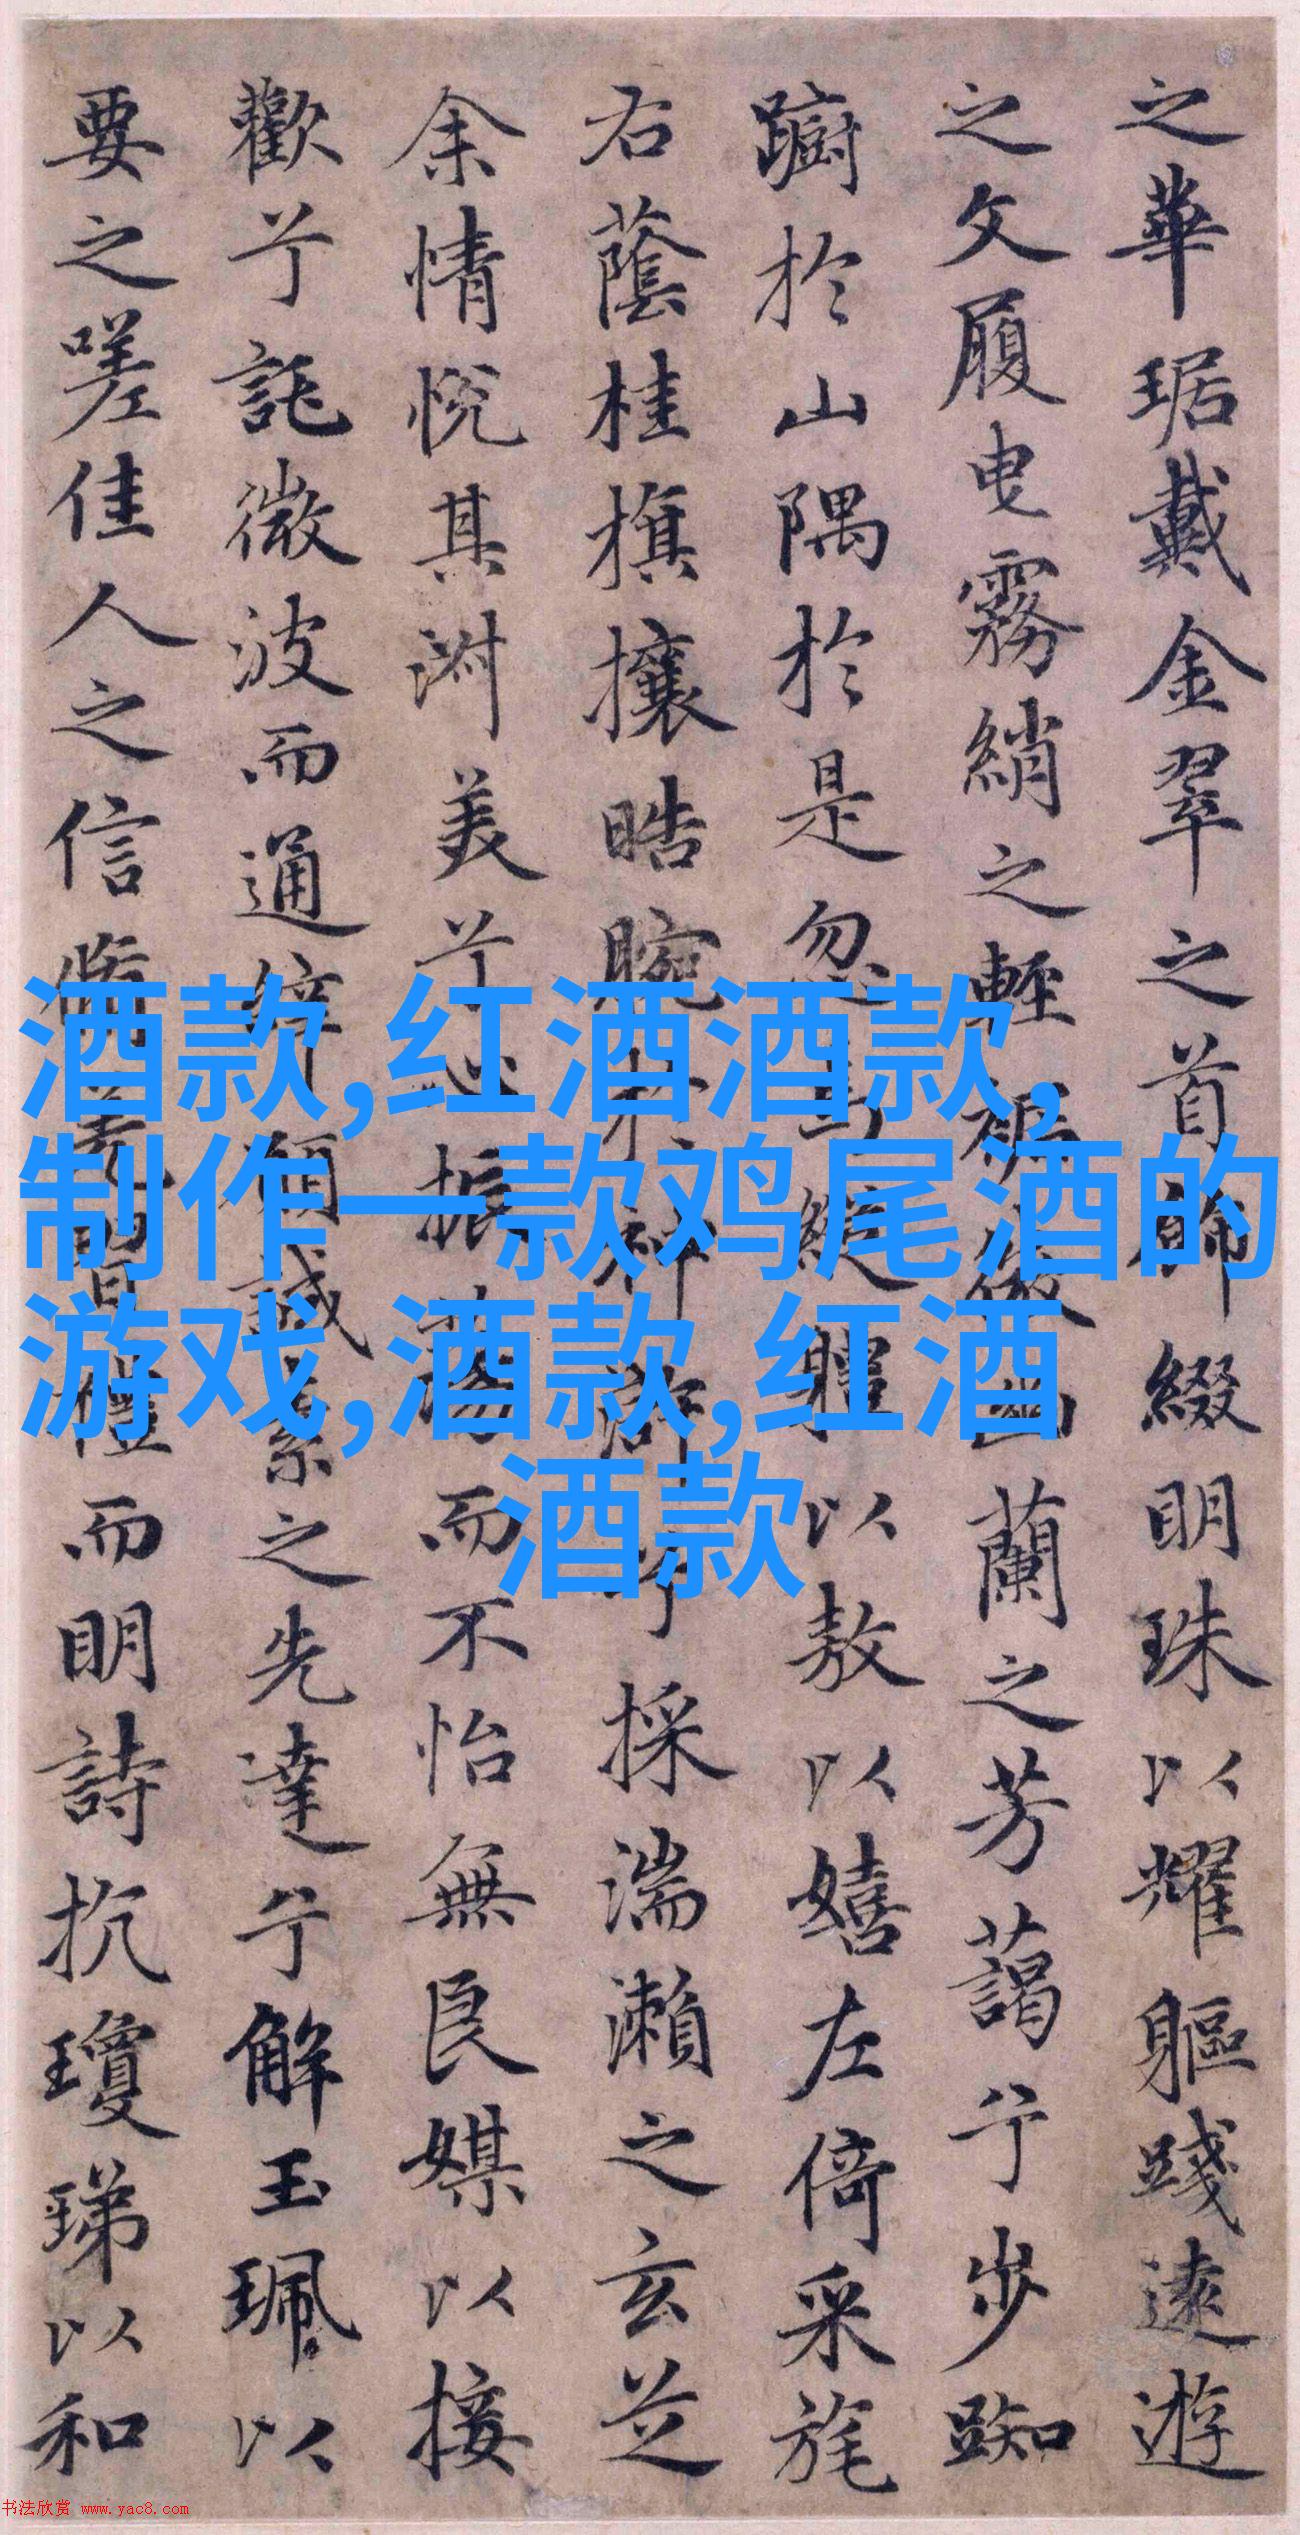 之華琚戴金翠之首飾綴明珠以耀軀踐遠遊
之文履曳霧綃之輕裾微幽蘭之芳藹兮步踟
蹰於山隅於是忽焉縱軆以敖以嬉左倚采旄
右蔭桂旗攘皓腕於神滸兮採湍瀨之玄芝
余情悅其淑美兮心振蕩而不怡無良媒以接
歡兮託微波而通辭願誠素之先達兮解玉珮以
要之嗟佳人之信脩羌習禮而明詩抗瓊珶以和
酒款,红酒酒款,
制作一款鸡尾酒的
游戏,酒款,红酒
酒款
书法欣赏 www.yac8.com